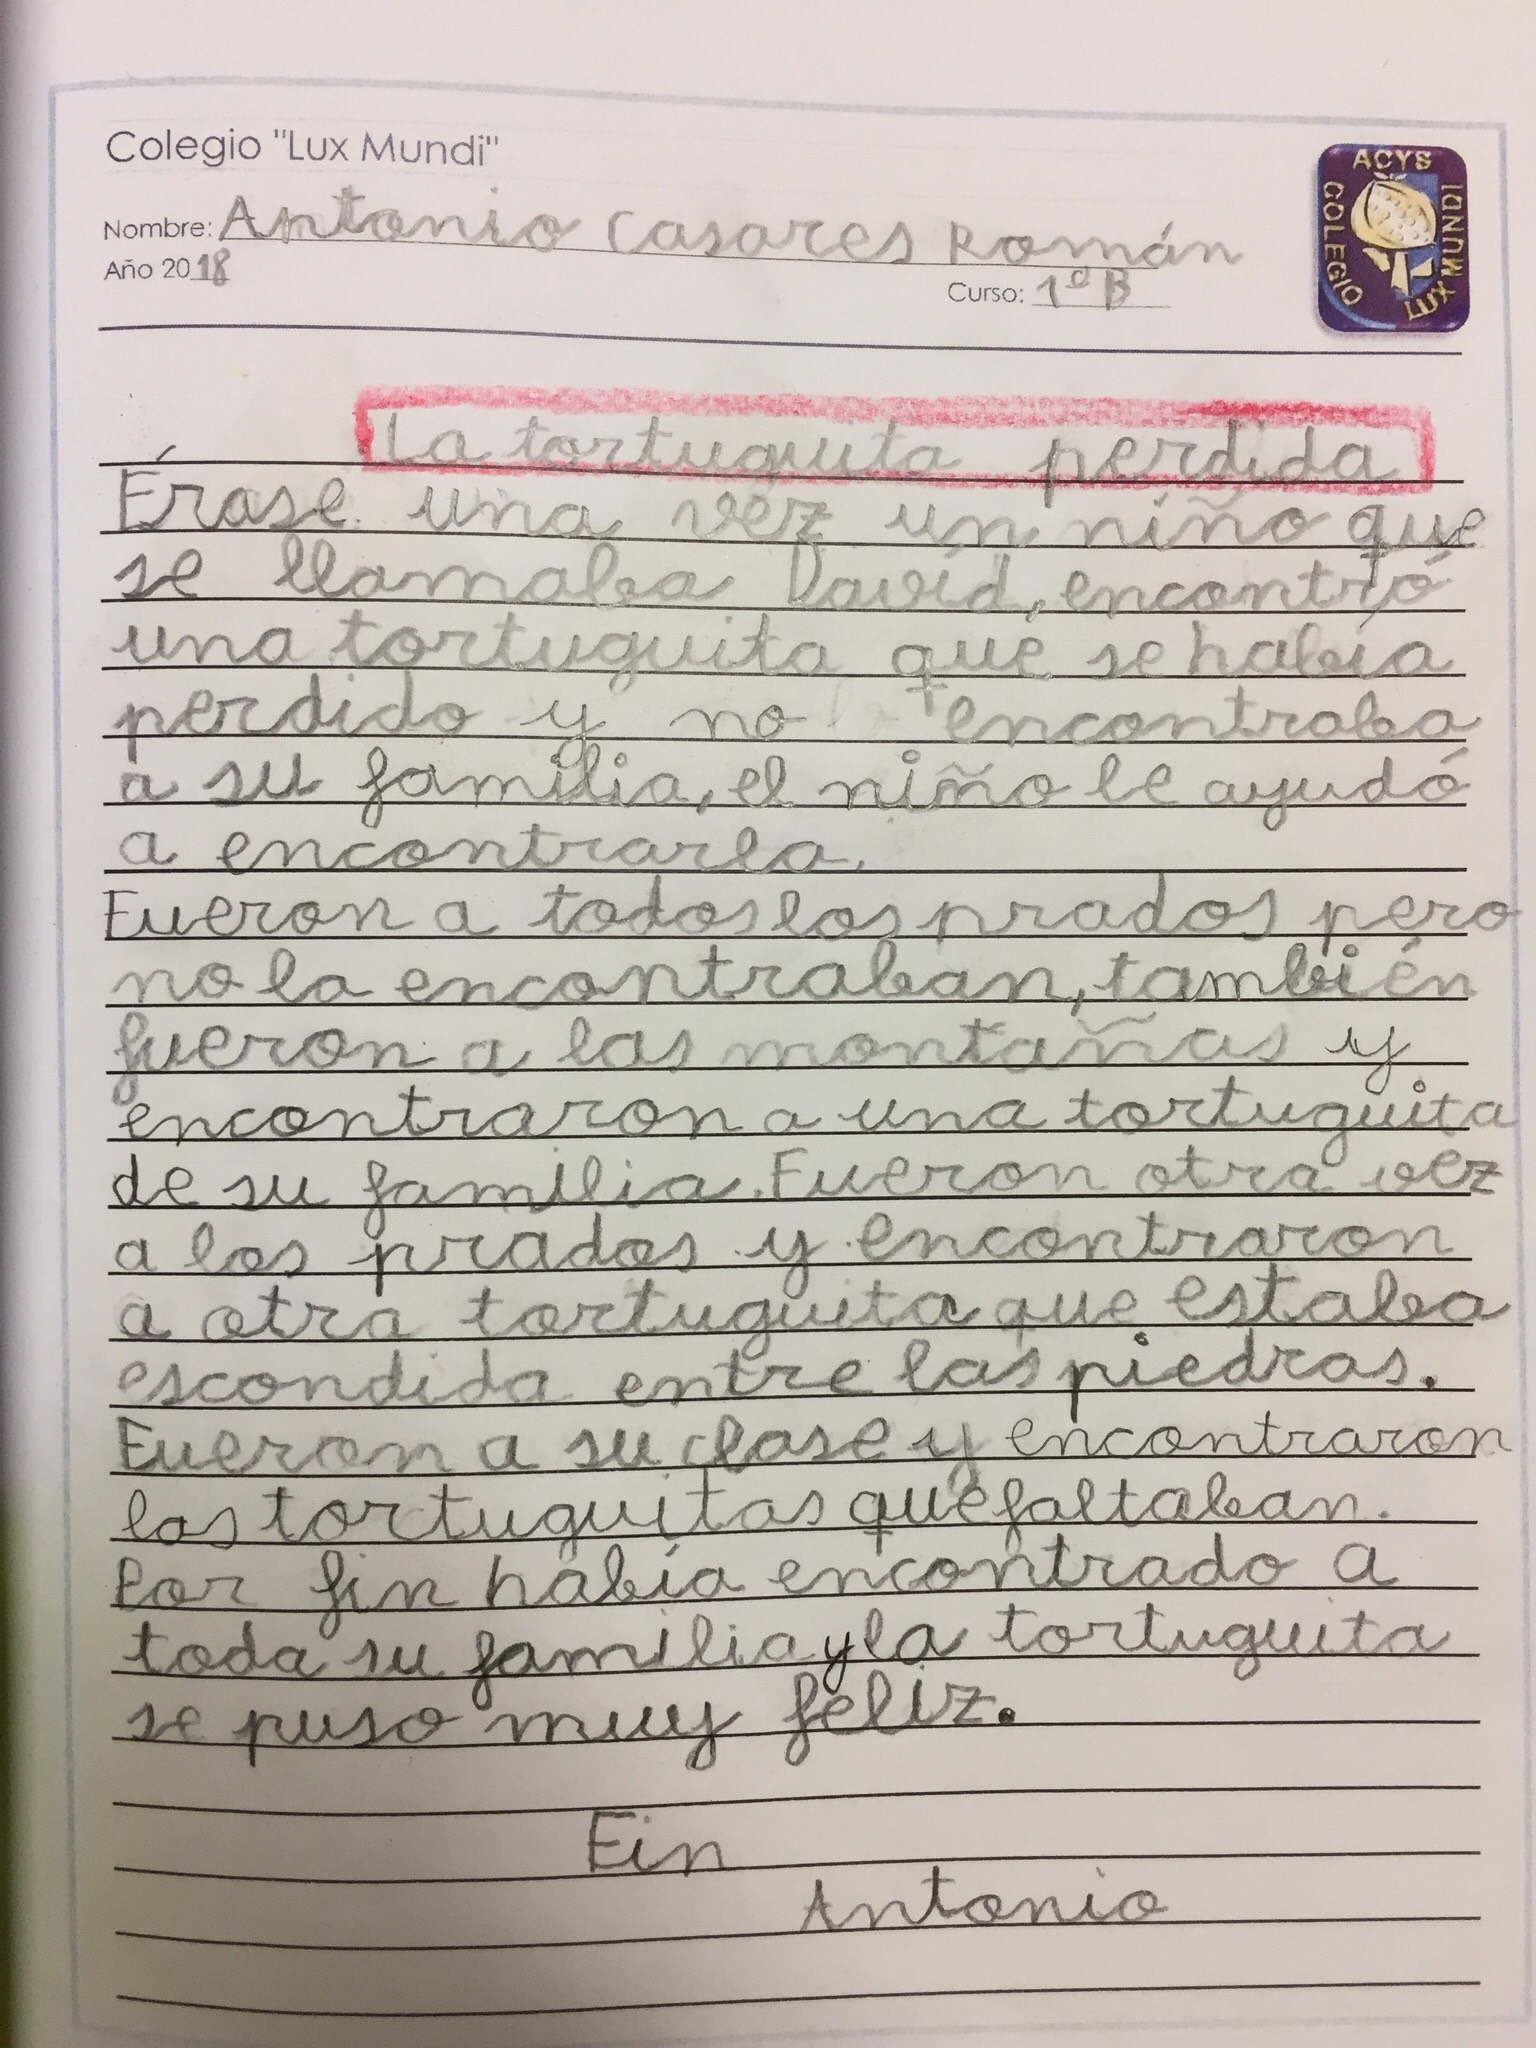 Colegio "Lux Mundi"
ACYS
COLEGIO
LUX MUNDI
Nombre: Antonio Casares Román
Año 2018
Curso: 1º B
La tortuguita perdida
Érase una vez un niño que
se llamaba David, encontró
una tortuguita que se había
perdido y no encontraba
a su familia, el niño le ayudó
a encontrarla.
Fueron a todos los prados pero
no la encontraban, también
fueron a las montañas y
encontraron a una tortuguita
de su familia. Fueron otra vez
a los prados y encontraron
a otra tortuguita que estaba
escondida entre las piedras.
Fueron a su clase y encontraron
las tortuguitas que faltaban.
Por fin había encontrado a
toda su familia y la tortuguita
se puso muy feliz.
Fin
Antonio